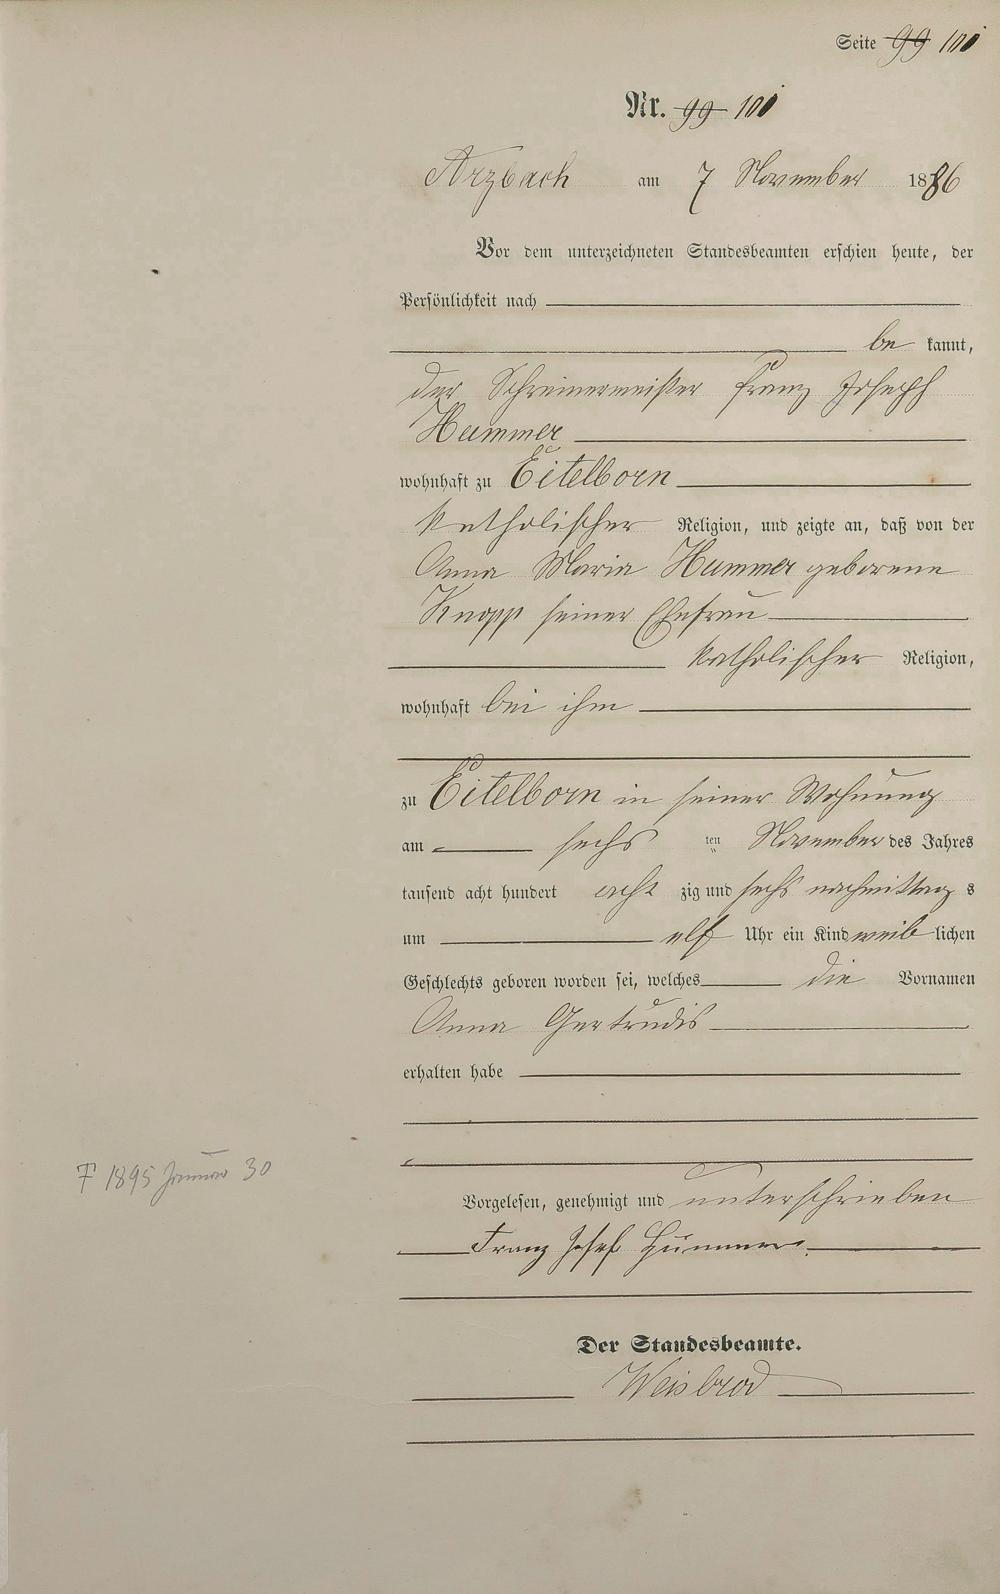 Seite 99 100
Nr. 99 100
Arzbach am 7 November 1886
Vor dem unterzeichneten Standesbeamten erschien heute, der
Persönlichkeit nach
be kannt,
der Schreinermeister Franz Joseph
Hummer
wohnhaft zu Eitelborn
katholischer Religion, und zeigte an, daß von der
Anna Maria Hummer geborene
Knopp seiner Ehefrau
katholischer Religion,
wohnhaft bei ihm
zu Eitelborn in seiner Wohnung
am sechs ten November des Jahres
tausend acht hundert acht zig und sechs nachmittag s
um elf Uhr ein Kind weib lichen
Geschlechts geboren worden sei, welches die Vornamen
Anna Gertrudis
erhalten habe
† 1895 Januar 30
Vorgelesen, genehmigt und unterschrieben
Franz Josef Hummer
Der Standesbeamte.
Weisbrod